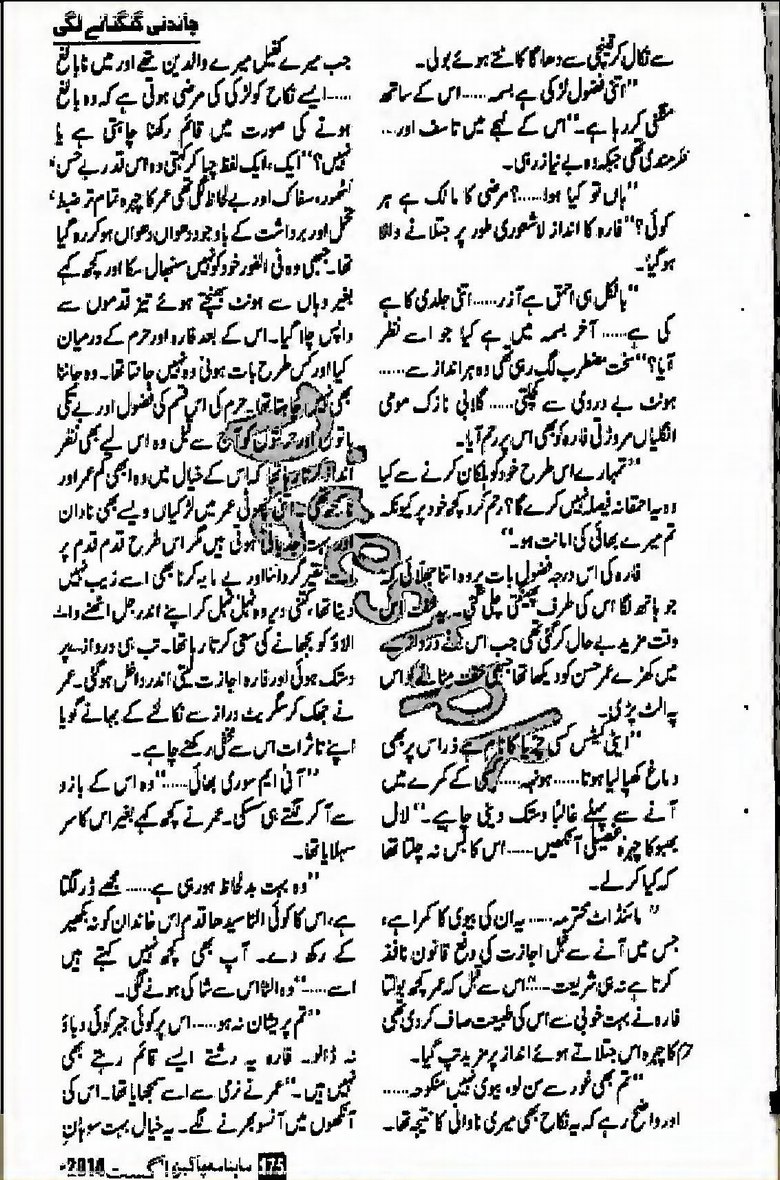 چاندنی گنگنانے لگی
سے نکال کر قینچی سے دھاگا کاٹتے ہوئے بولی۔
"اتنی فضول لڑکی ہے بسمہ ...... اس کے ساتھ
منگنی کر رہا ہے۔" اس کے لہجے میں تاسف اور ...
فکر مندی تھی جبکہ وہ بے نیاز رہی۔
"ہاں تو کیا ہوا ......؟ مرضی کا مالک ہے ہر
کوئی؟" فارہ کا انداز لاشعوری طور پر جتلانے والا
ہو گیا۔
"بالکل ہی احمق ہے آذر ...... اتنی جلدی کا ہے
کی ہے ...... آخر بسمہ میں ہے کیا جو اسے نظر
آیا؟" سخت مضطرب لگ رہی تھی وہ ہر انداز سے ......
ہونٹ بے دردی سے کچلتی ...... گلابی نازک مومی
انگلیاں مروڑتی فارہ کو بھی اس پر رحم آیا۔
"تمہارے اس طرح خود کو ہلکان کرنے سے کیا
وہ یہ احمقانہ فیصلہ نہیں کرے گا؟ رحم کرو کچھ خود پر کیونکہ
تم میرے بھائی کی امانت ہو۔"
فارہ کی اس درجہ فضول بات پر وہ اتنا جھلائی کہ
جو ہاتھ لگا اس کی طرف پھینکتی چلی گئی۔ یہ خفت اس
وقت مزید بے حال کر گئی تھی جب اس نے دروازے
میں کھڑے عمر حسن کو دیکھا تھا جبھی خفت مٹانے کو اس
پہ الٹ پڑی۔
"ایٹی کیٹس کسی چڑیا کا نام ہے ذرا اس پر بھی
دماغ کھپا لیا ہوتا ...... ہونہہ ...... کسی کے کمرے میں
آنے سے پہلے غالباً دستک دینی چاہیے۔" لال
بھبوکا چہرہ غصیلی آنکھیں ...... اس کا بس نہ چلتا تھا
کہ کیا کر لے۔
"مائنڈ اٹ محترمہ ...... یہ ان کی بیوی کا کمرا ہے،
جس میں آنے سے قبل اجازت کی دفع قانون نافذ
کرتا ہے نہ ہی شریعت ......" اس سے قبل کہ عمر کچھ بولتا
فارہ نے بہت خوبی سے اس کی طبیعت صاف کر دی تھی
حرم کا چہرہ اس جتلاتے ہوئے انداز پر مزید تپ گیا۔
"تم بھی غور سے سن لو، بیوی نہیں منکوحہ ......
اور واضح رہے کہ یہ نکاح بھی میری نادانی کا نتیجہ تھا۔
جب میرے کفیل میرے والدین تھے اور میں نابالغ
...... ایسے نکاح کو لڑکی کی مرضی ہوتی ہے کہ وہ بالغ
ہونے کی صورت میں قائم رکھنا چاہتی ہے یا
نہیں؟" ایک، ایک لفظ چبا کر کہتی وہ اس قدر بے حس،
کٹھور، سفاک اور بے لحاظ لگی تھی عمر کا چہرہ تمام تر ضبط،
تحمل اور برداشت کے باوجود دھواں دھواں ہو کر رہ گیا
تھا۔ جبھی وہ فی الفور خود کو نہیں سنبھال سکا اور کچھ کہے
بغیر وہاں سے ہونٹ بھینچے ہوئے تیز قدموں سے
واپس چلا گیا۔ اس کے بعد فارہ اور حرم کے درمیان
کیا اور کس طرح بات ہوئی وہ نہیں جانتا تھا۔ وہ جاننا
بھی نہیں چاہتا تھا۔ حرم کی اس قسم کی فضول اور بے تکی
باتوں اور حرکتوں کو آج سے قبل وہ اس لیے بھی نظر
انداز کرتا رہا تھا کہ اس کے خیال میں وہ ابھی کم عمر اور
ناسمجھ تھی۔ اتنی چھوٹی عمر میں لڑکیاں ویسے بھی نادان
اور بہت جذباتی ہوتی ہیں مگر اس طرح قدم قدم پر
اسے حقیر گرداننا اور بے مایہ کرنا بھی اسے زیب نہیں
دیتا تھا، کتنی دیر وہ ٹہل ٹہل کر اپنے اندر جل اٹھنے والے
الاؤ کو بجھانے کی سعی کرتا رہا تھا۔ تب ہی دروازے پر
دستک ہوئی اور فارہ اجازت لیتی اندر داخل ہو گئی۔ عمر
نے جھک کر سگریٹ دراز سے نکالنے کے بہانے گویا
اپنے تاثرات اس سے مخفی رکھنے چاہے۔
"آئی ایم سوری بھائی ......" وہ اس کے بازو
سے آ کر لگتے ہی سسکی۔ عمر نے کچھ کہے بغیر اس کا سر
سہلایا تھا۔
"وہ بہت بد لحاظ ہو رہی ہے ...... مجھے ڈر لگتا
ہے، اس کا کوئی الٹا سیدھا قدم اس خاندان کو نہ بکھیر
کے رکھ دے۔ آپ بھی کچھ نہیں کہتے ہیں
اسے ......" وہ الٹا اس سے شاکی ہونے لگی۔
"تم پریشان نہ ہو ...... اس پر کوئی جبر کوئی دباؤ
نہ ڈالو۔ فارہ یہ رشتے ایسے قائم رہتے بھی
نہیں ہیں۔" عمر نے نرمی سے اسے سمجھایا تھا۔ اس کی
آنکھوں میں آنسو بھرنے لگے۔ یہ خیال بہت سوہان
175 ماہنامہ پاکیزہ اگست 2014ء